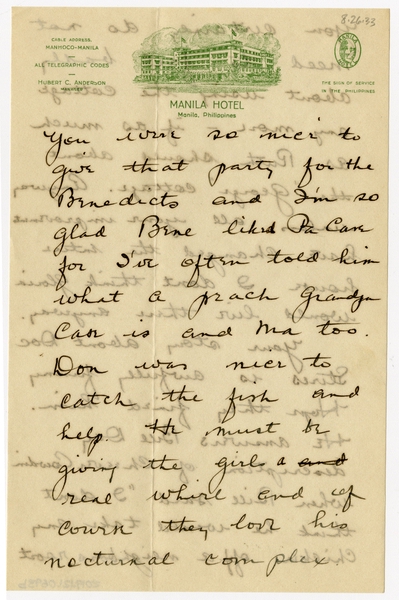 8-26-33
CABLE ADDRESS,
MANHOCO-MANILA
ALL TELEGRAPHIC CODES
HUBERT C. ANDERSON
MANAGER
MANILA HOTEL
Manila, Philippines
THE SIGN OF SERVICE
IN THE PHILIPPINES
You were so nice to
give that party for the
Benedicts and I'm so
glad Bene liked Pa Care
for I've often told him
what a peach Grandpa
Care is and Ma too.
Don was nice to
catch the fish and
help. He must be
giving the girls a and
real whirl and of
course they love his
nocturnal complex